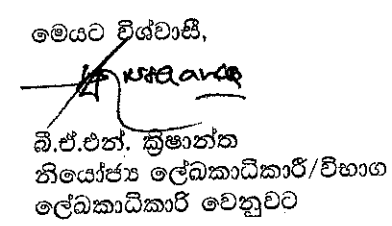 මෙයට විශ්වාසී,
බී.ඒ.එන්. ක්‍රිෂාන්ත
නියෝජ්‍ය ලේඛකාධිකාරී/විභාග
ලේඛකාධිකාරි වෙනුවට